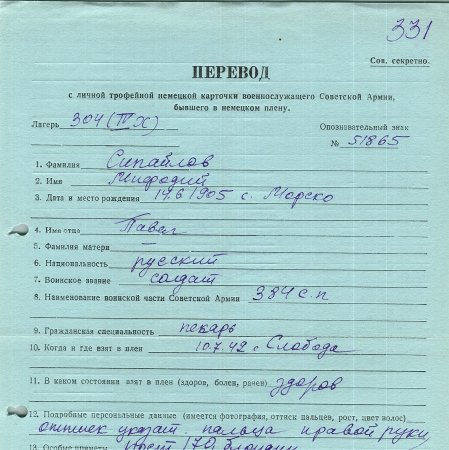 331
Сов. секретно.
ПЕРЕВОД
с личной трофейной немецкой карточки военнослужащего Советской Армии,
бывшего в немецком плену.
Лагерь 304 (IV X)
Опознавательный знак
№ 51865
1. Фамилия Сипайлов
2. Имя Мифодий
3. Дата и место рождения 14.6 1905 с. Морско
4. Имя отца Павел
5. Фамилия матери —
6. Национальность русский
7. Воинское звание солдат
8. Наименование воинской части Советской Армии 384 с.п
9. Гражданская специальность пекарь
10. Когда и где взят в плен 10.7.42 с Слобода
11. В каком состоянии взят в плен (здоров, болен, ранен) здоров
12. Подробные персональные данные (имеется фотография, оттиск пальцев, рост, цвет волос)
оттиск указат. пальца правой руки,
13. Особые приметы рост 170, блондин